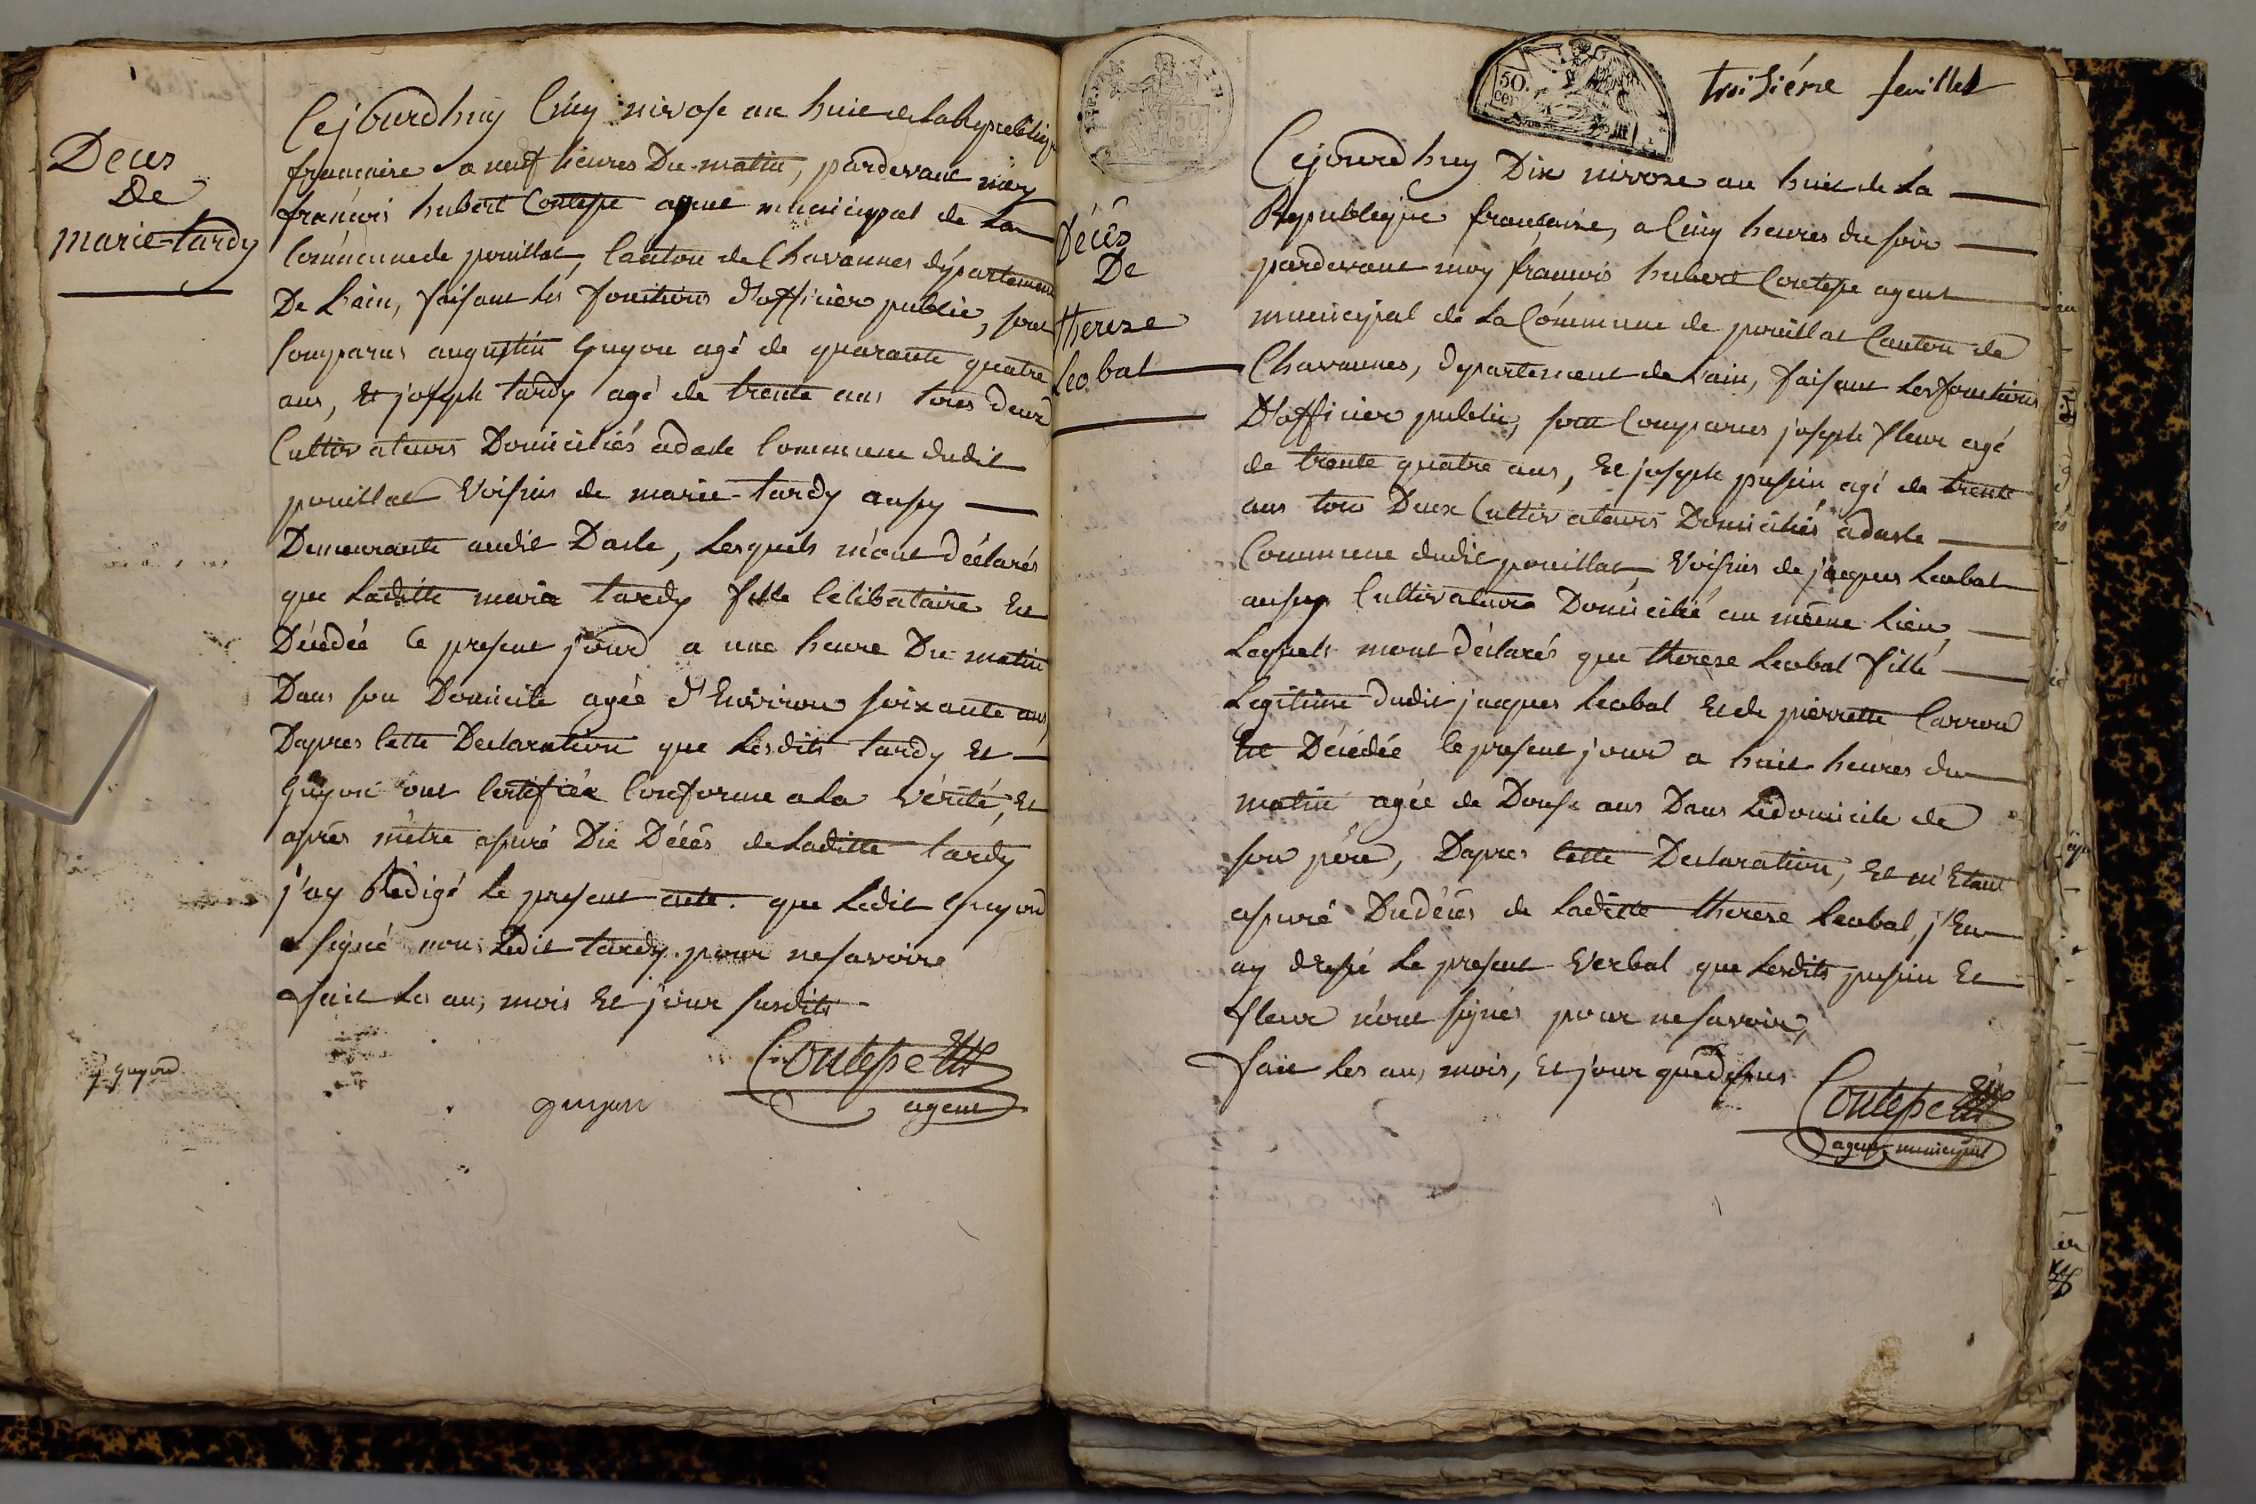 Deces
De
marie tardy
Cejourdhuy Cinq nivose an huit de la Republique
francaise a neuf heures Du matin, pardevant moy
francois hubert Contepe agent municipal de La
Commune de pouillat, Canton de Chavannes département
De Lain, faisant les fonctions d'officier public, sont
Comparus augustin Guyon agé de quarante quatre
ans, Et joseph tardy agé de trente ans tous deux
Cultivateurs Domiciliés adasle Commune dudit
pouillat Voisins de marie tardy aussy
Demeurante audit Dasle, Lesquels m'ont déclarés
que Laditte marie tardy fille Celibataire Et
Décédée Ce present jour a une heure Du matin
Dans son Domicile agée d'Environ soixante ans,
Dapres Cette Declaration que Lesdits tardy Et
Guyon ont Certifiée Conforme a La Vérité, Et
aprés métre assuré Du Décès de Laditte tardy
j'ay Rédigé Le present acte que Ledit Guyon
a signé non Ledit tardy pour ne savoire
fait Les an, mois Et jour susdits
guyon
Contepe
agent
g guyon
troisiéme feuillet
50.
cen
Décès
De
therese
Leobal
Cejourdhuy Dix nivose an huit de La
Republique française, a Cinq heures du soir
pardevant moy francois hubert Contepe agent
municipal de La Commune de pouillat Canton de
Chavannes, departement de Lain, faisant Les fonctions
D'officier public, sont Comparus joseph fleur agé
de trente quatre ans, Et joseph pusin agé de trente
ans tous Deux Cultivateurs Domiciliés adasle
Commune dudit pouillat, Voisins de jacques Leobal
aussy Cultivateur Domicilié au même Lieu,
Lequels mont déclarés que therese Leobal fille
Legitime dudit jacques Leobal Et de pierrette Carron
Et Décédée le present jour a huit heures du
matin agée de Douse ans Dans Le domicile de
son père, Dapres Cette Declaration, Et m'Etant
assuré Du décès de Laditte therese Leobal, j'En
ay dressé Le present Verbal que Lesdits pusin Et
fleur n'ont signés pour ne savoir,
fait Les an, mois, Et jour que dessus
Contepe
agent municipal